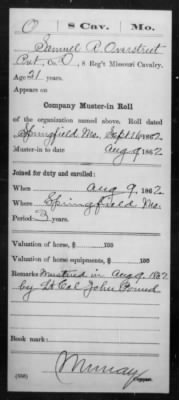 O 8 Cav. Mo.
Samuel R. Overstreet
Pvt, Co. D, 8 Reg't Missouri Cavalry.
Age 21 years.
Appears on
Company Muster-in Roll
of the organization named above. Roll dated
Springfield Mo. Sept 16, 1862.
Muster-in to date Aug 9, 1862
Joined for duty and enrolled:
When Aug 9, 1862
Where Springfield Mo.
Period 3 years.
Valuation of horse, $ 100
Valuation of horse equipments, $ 100
Remarks Mustered in Aug 9, 1862
by Lt Col John
Book mark:
Murray
(356) Copyist.